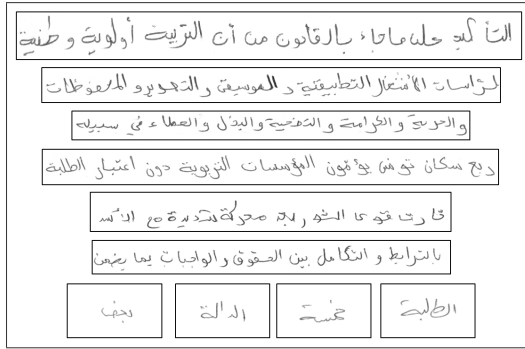 التأكيد على ما جاء بالقانون من أن التربية أولوية وطنية
لدراسات الأشغال التطبيقية والموسيقى والتصوير والمحفوظات
والحرية والكرامة والتضحية والبذل والعطاء في سبيله
ربع سكان تونس يؤمون المؤسسات التربوية دون اعتبار الطلبة
قادت قوى الثورية معركة شديدة مع الأسد
بالترابط و التكامل بين الحقوق و الواجبات بما يضمن
الطلبة خمسة الدالة بعض